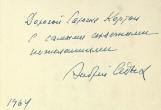 Дорогой Сарре Керзон
с самыми сердечными
пожеланиями
Андрей Седых
1964